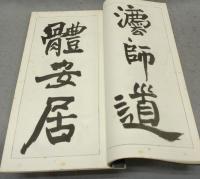 灋師道
體安居